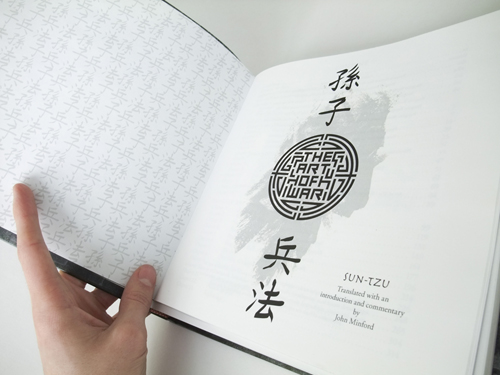 孫
子
THE
ART
OF
WAR
兵
法
SUN-TZU
Translated with an
introduction and commentary
by
John Minford